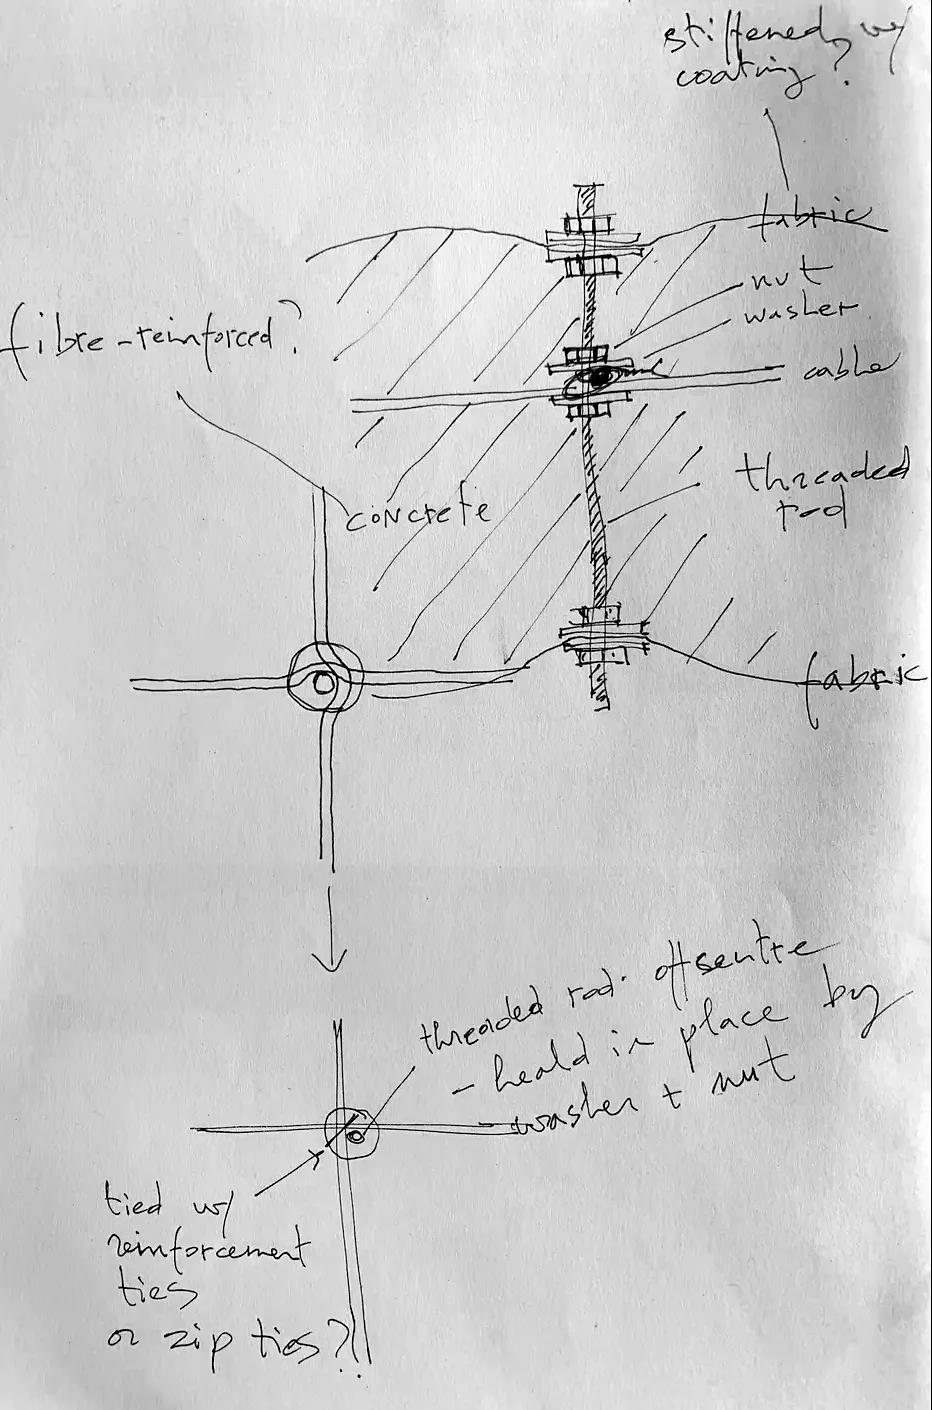 stiffened w/
coating?
fabric
nut
washer
fibre-reinforced?
cable
threaded
rod
concrete
fabric
threaded rod offsentre
- heald in place by
washer + nut
tied w/
reinforcement
ties
or zip ties?!